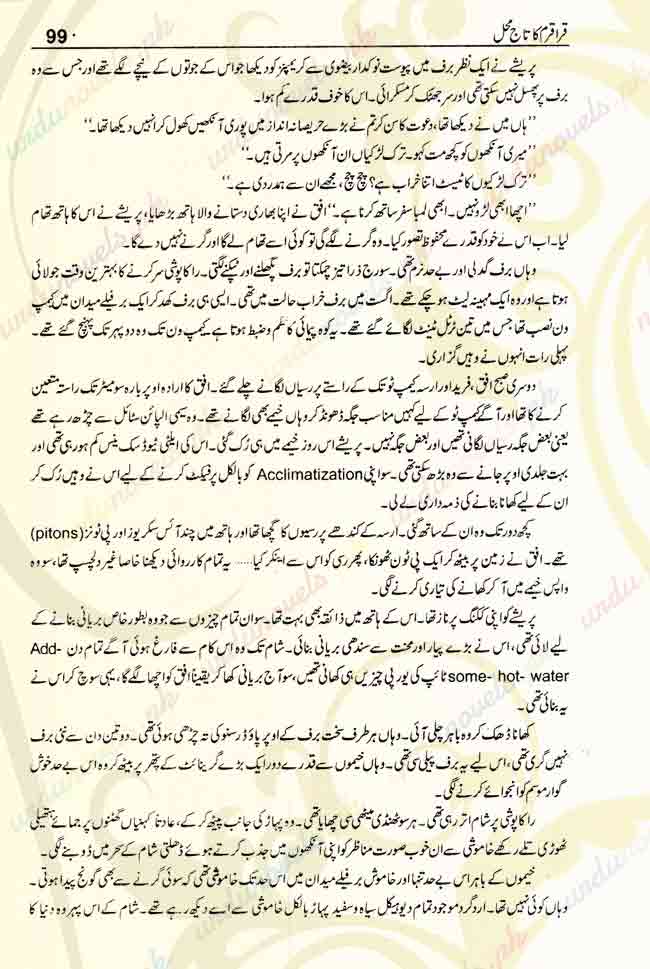 قراقرم کا تاج محل
99
پریشے نے ایک نظر برف میں پیوست نوکدار بیضوی سے کریمپنز کو دیکھا جو اس کے جوتوں کے نیچے لگے تھے اور جس سے وہ
برف پر پھسل نہیں سکتی تھی اور سر جھٹک کر مسکرائی۔ اس کا خوف قدرے کم ہوا۔
’’ہاں میں نے دیکھا تھا، دعوت کا سن کر تم نے بڑے حریصانہ انداز میں پوری آنکھیں کھول کر انہیں دیکھا تھا۔‘‘
’’میری آنکھوں کو کچھ مت کہو۔ ترک لڑکیاں ان آنکھوں پر مرتی ہیں۔‘‘
’’ترک لڑکیوں کا ٹیسٹ اتنا خراب ہے؟ چچ چچ، مجھے ان سے ہمدردی ہے۔‘‘
’’اچھا ابھی لڑو نہیں۔ ابھی لمبا سفر ساتھ کرنا ہے۔‘‘ افق نے اپنا بھاری دستانے والا ہاتھ بڑھایا، پریشے نے اس کا ہاتھ تھام
لیا۔ اب اس نے خود کو قدرے محفوظ تصور کیا۔ وہ گرنے لگے گی تو کوئی اسے تھام لے گا اور گرنے نہیں دے گا۔
وہاں برف گدلی اور بے حد نرم تھی۔ سورج ذرا تیز چمکتا تو برف پگھلنے اور ٹپکنے لگتی۔ راکا پوشی سر کرنے کا بہترین وقت جولائی
ہوتا ہے اور وہ ایک مہینہ لیٹ ہو چکے تھے۔ اگست میں برف خراب حالت میں تھی۔ ایسی ہی برف کھد کر ایک برفیلے میدان میں کیمپ
ون نصب تھا جس میں تین ٹرٹل ٹینٹ لگائے گئے تھے۔ یہ کوہ پیمائی کا نظم و ضبط ہوتا ہے کیمپ ون تک وہ دوپہر تک پہنچ گئے تھے۔
پہلی رات انہوں نے وہیں گزاری۔
دوسری صبح افق، فرید اور ارسہ کیمپ ٹو تک کے راستے پر رسیاں لگانے چلے گئے۔ افق کا ارادہ اوپر بارہ سو میٹر تک راستہ متعین
کرنے کا تھا اور آگے کیمپ ٹو کے لیے کہیں مناسب جگہ ڈھونڈ کر وہاں خیمے بھی لگانے تھے۔ وہ سیمی الپائن سٹائل سے چڑھ رہے تھے
یعنی بعض جگہ رسیاں لگانی تھیں اور بعض جگہ نہیں۔ پریشے اس روز خیمے میں ہی رک گئی۔ اس کی ایلٹی ٹیوڈ سک نیس کم ہو رہی تھی اور
بہت جلدی اوپر جانے سے وہ بڑھ سکتی تھی۔ سو اپنی Acclimatization کو بالکل پرفیکٹ کرنے کے لیے اس نے وہیں رک کر
ان کے لیے کھانا بنانے کی ذمہ داری لے لی۔
کچھ دور تک وہ ان کے ساتھ گئی۔ ارسہ کے کندھے پر رسیوں کا گچھا تھا اور ہاتھ میں چند آئس سکریوز اور پی ٹونز (pitons)
تھے۔ افق نے زمین پر بیٹھ کر ایک پی ٹون ٹھونکا، پھر رسی کو اس سے اینکر کیا..... یہ تمام کارروائی دیکھنا خاصا غیر دلچسپ تھا، سو وہ
واپس خیمے میں آ کر کھانے کی تیاری کرنے لگی۔
پریشے کو اپنی ککنگ پر ناز تھا۔ اس کے ہاتھ میں ذائقہ بھی بہت تھا۔ سو ان تمام چیزوں سے جو وہ بطور خاص بریانی بنانے کے
لیے لائی تھی، اس نے بڑے پیار اور محنت سے سندھی بریانی بنائی۔ شام تک وہ اس کام سے فارغ ہوئی آگے تمام دن Add-
some- hot- water ٹائپ کی یورپی چیزیں ہی کھانی تھیں، سو آج بریانی کھا کر یقیناً افق کو اچھا لگے گا، یہی سوچ کر اس نے
یہ بنائی تھی۔
کھانا ڈھک کر وہ باہر چلی آئی۔ وہاں ہر طرف سخت برف کے اوپر پاؤڈر سنو کی تہ چڑھی ہوئی تھی۔ دو تین دن سے نئی برف
نہیں گری تھی، اس لیے یہ برف پیلی سی تھی۔ وہاں خیموں سے قدرے دور ایک بڑے گرینائٹ کے پتھر پر بیٹھ کر وہ اس بے حد خوش
گوار موسم کو انجوائے کرنے لگی۔
راکا پوشی پر شام اتر رہی تھی۔ ہر سو ٹھنڈی میٹھی سی چھایا تھی۔ وہ پہاڑ کی جانب پیٹھ کر کے، عادتاً کہنیاں گھٹنوں پر جمائے ہتھیلی
ٹھوڑی تلے رکھے خاموشی سے ان خوب صورت مناظر کو اپنی آنکھوں میں جذب کرتے ہوئے ڈھلتی شام کے سحر میں ڈوبنے لگی۔
خیموں کے باہر اس بے حد تنہا اور خاموش برفیلے میدان میں اس حد تک خاموشی تھی کہ سوئی گرنے سے بھی گونج پیدا ہوتی۔
وہاں کوئی نہیں تھا۔ ارد گرد موجود تمام دیوہیکل سیاہ و سفید پہاڑ بالکل خاموشی سے اسے دیکھ رہے تھے۔ شام کے اس پہر وہ دنیا کا